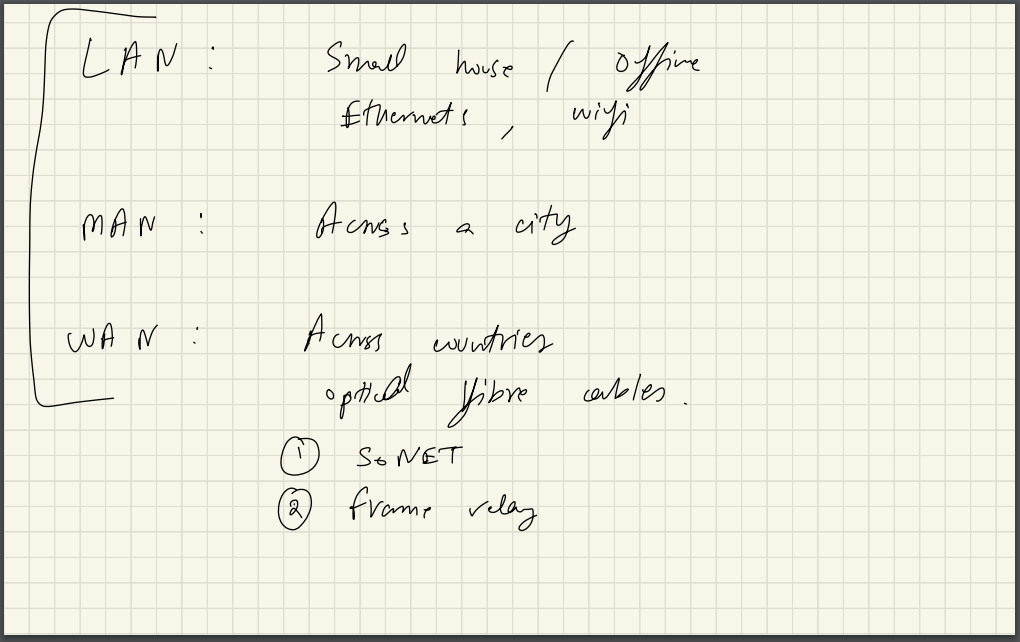 LAN : Small house / Office
Ethernets , wifi
MAN : Across a city
WAN : Across countries
optical fibre cables .
① SONET
② frame relay